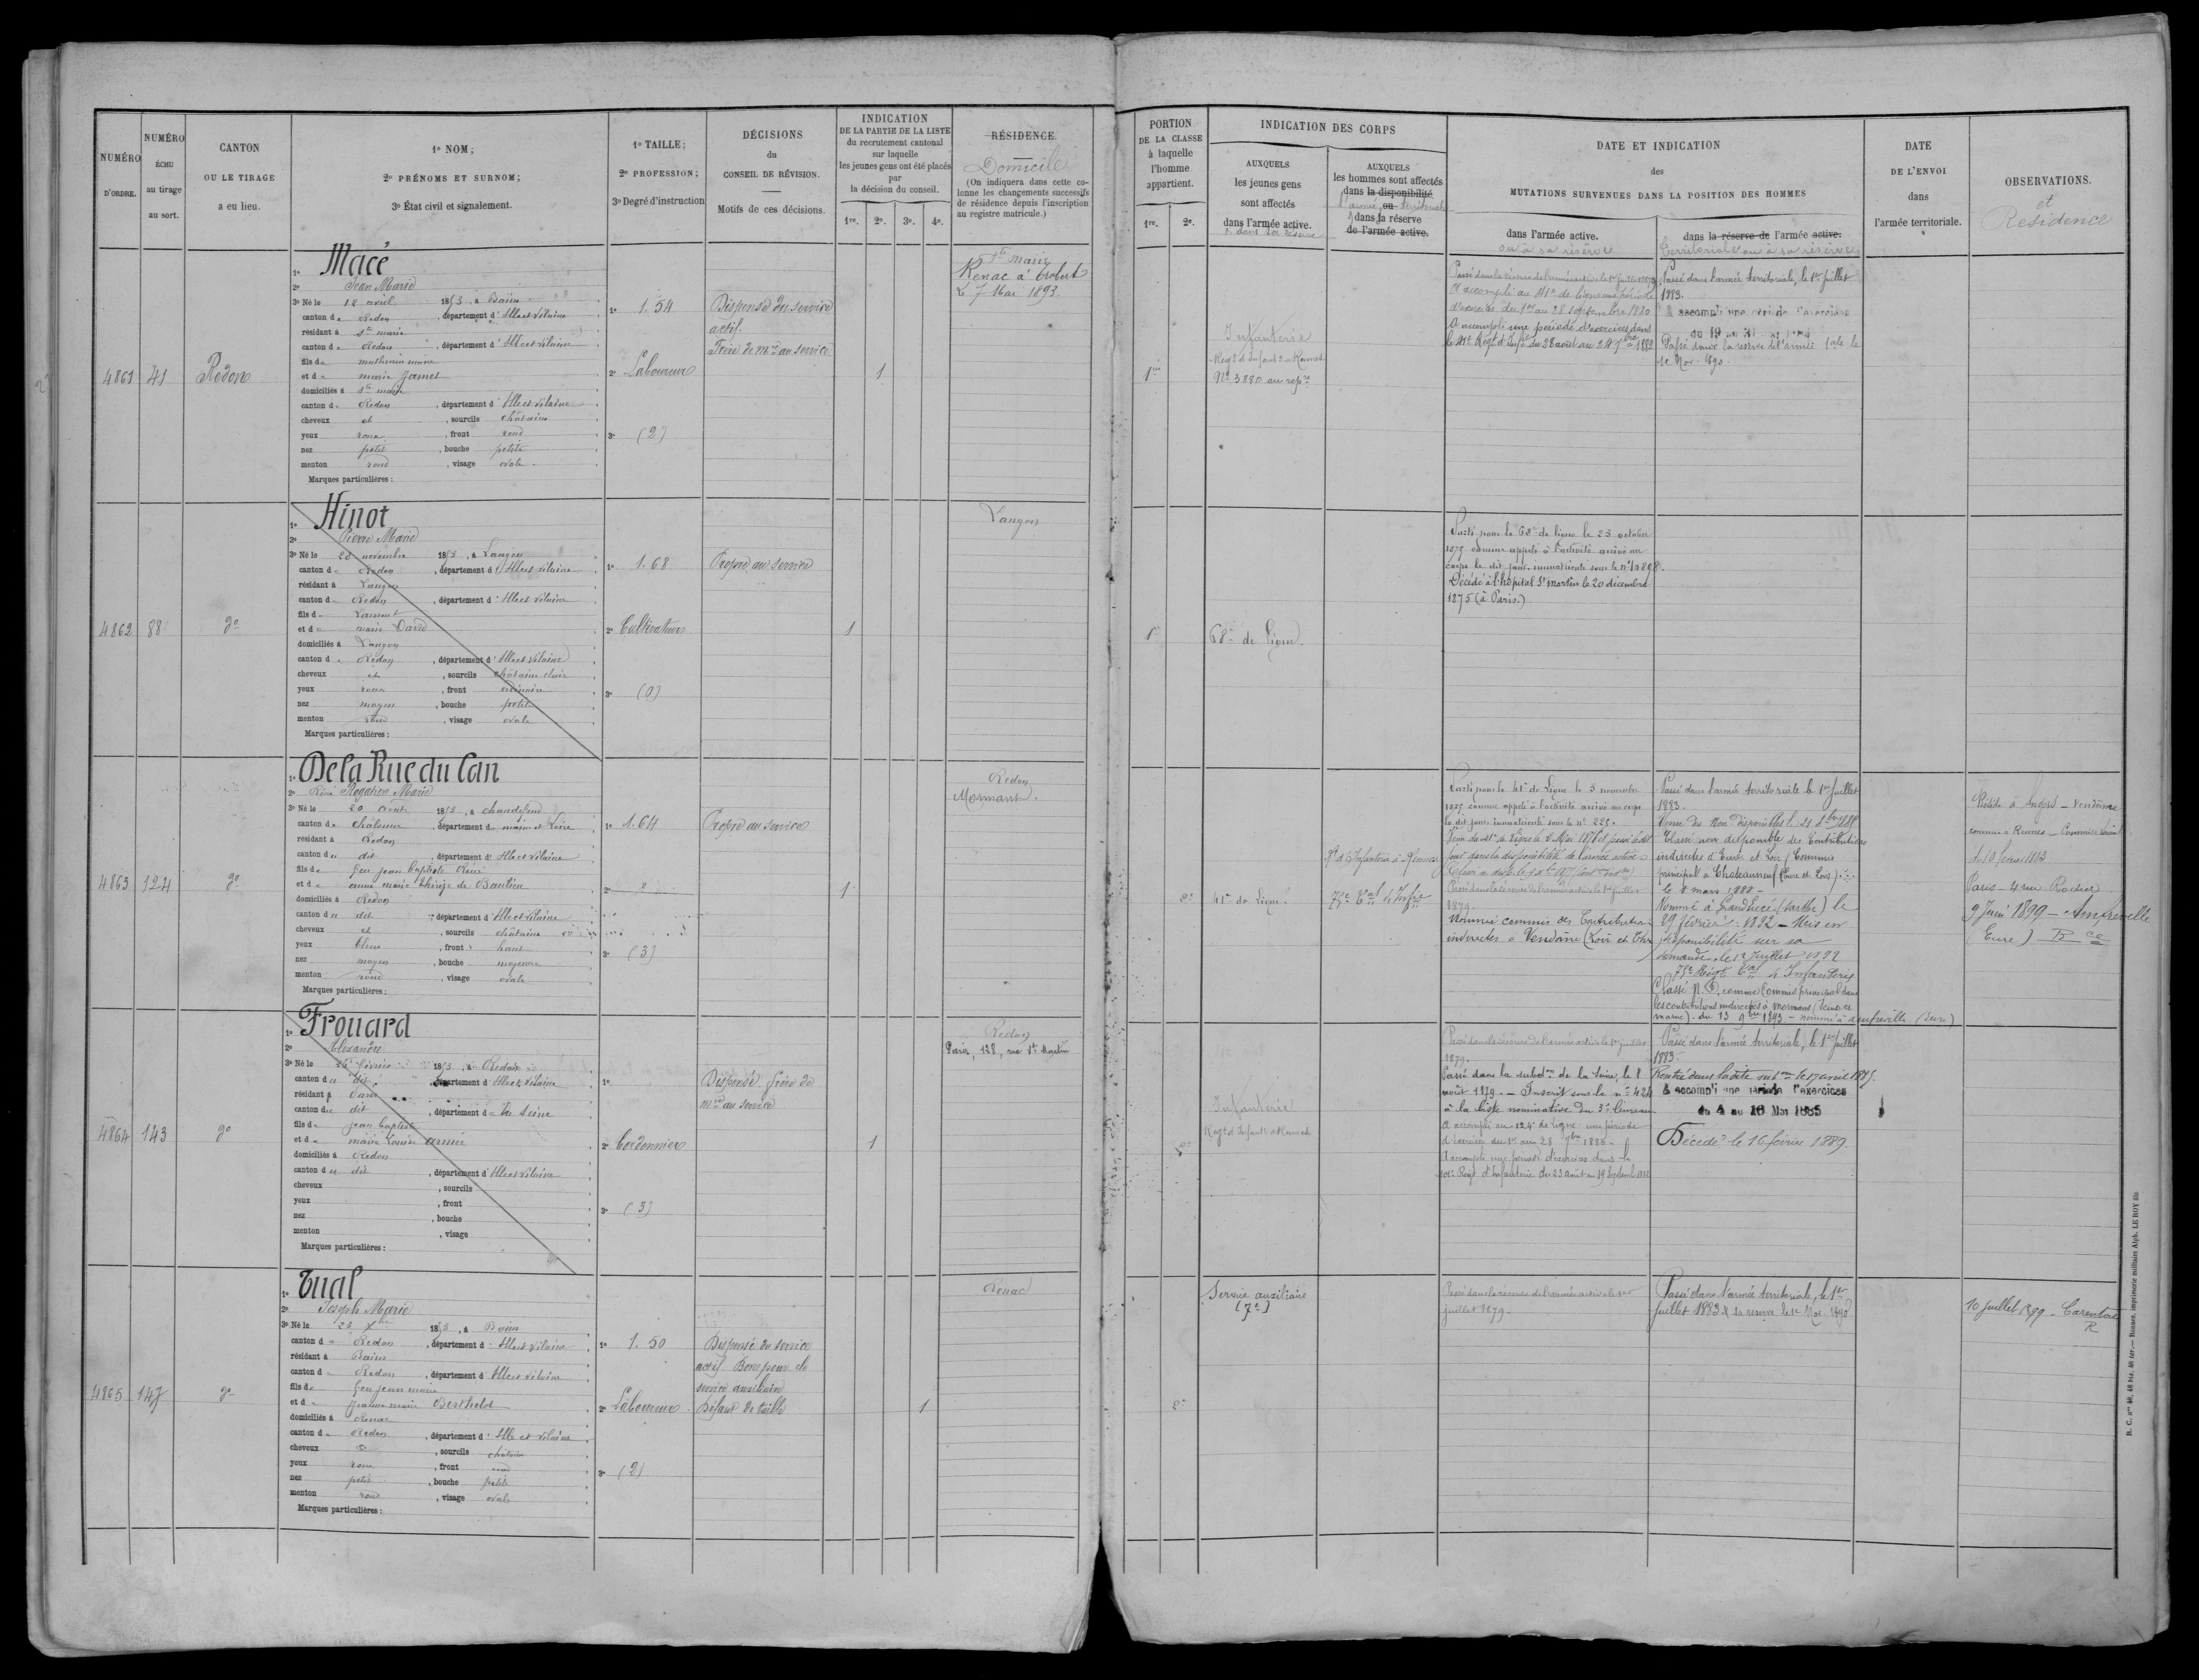 NUMÉRO D'ORDRE.
NUMÉRO ÉCHU au tirage au sort.
CANTON OU LE TIRAGE a eu lieu.
1º NOM;
2º PRÉNOMS ET SURNOM;
3º État civil et signalement.
1º TAILLE;
2º PROFESSION;
3º Degré d'instruction
DÉCISIONS
du
CONSEIL DE RÉVISION.
Motifs de ces décisions.
INDICATION
DE LA PARTIE DE LA LISTE
du recrutement cantonal
sur laquelle
les jeunes gens ont été placés
par
la décision du conseil.
1re. 2e. 3e. 4e.
RÉSIDENCE
Domicile
(On indiquera dans cette co-
lonne les changements successifs
de résidence depuis l'inscription
au registre matricule.)
4861
41
Redon
1º Macé
2º Jean Marie
3º Né le 18 avril 1853, à Bains
canton de Redon, département d'Ille et Vilaine
résidant à Ste marie
canton de Redon, département d'Ille et Vilaine
fils de mathurin marie
et de marie Jamet
domiciliés à Ste marie
canton de Redon, département d'Ille et Vilaine
cheveux et, sourcils châtains
yeux roux, front rond
nez petit, bouche petite
menton rond, visage ovale
Marques particulières:
1º 1.54
2º Laboureur
3º (2)
Dispensé du service
actif
Frère de mre au service
1
Ste Marie
Renac
le 7 Mai 1893.
4862
88
do
1º Hinot
2º Pierre Marie
3º Né le 28 novembre 1853, à Langon
canton de Redon, département d'Ille et Vilaine
résidant à Langon
canton de Redon, département d'Ille et Vilaine
fils de
et de marie David
domiciliés à Langon
canton de Redon, département d'Ille et Vilaine
cheveux et, sourcils châtains clair
yeux roux, front
nez moyen, bouche petite
menton rond, visage ovale
Marques particulières:
1º 1.68
2º Cultivateur
3º (0)
Propre au service
1
Langon
4863
124
do
1º De la Rue du Can
2º René Rogatien Marie
3º Né le 20 août 1853, à chaudefond
canton de chalonne, département de maine et Loire
résidant à Redon
canton du dit, département d'Ille et Vilaine
fils de feu jean baptiste René
et de anne marie de Baulieu
domiciliés à Redon
canton du dit, département d'Ille et Vilaine
cheveux et, sourcils châtains
yeux bleus, front haut
nez moyen, bouche moyenne
menton rond, visage ovale
Marques particulières:
1º 1.64
2º
3º (3)
Propre au service
1
Redon
Mormant.
4864
143
do
1º Frouard
2º Alexandre
3º Né le février 1853, à Redon
canton du dit, département d'Ille et Vilaine
résidant à Paris
canton du dit, département de la Seine
fils de jean baptiste
et de marie Louise
domiciliés à Redon
canton du dit, département d'Ille et Vilaine
cheveux, sourcils
yeux, front
nez, bouche
menton, visage
Marques particulières:
1º
2º Cordonnier
3º (3)
Dispensé frère de
mre au service
1
Redon
Paris, 128, rue St Martin
4865
147
do
1º Tual
2º Joseph Marie
3º Né le 23 Xbre 1853, à Bains
canton de Redon, département d'Ille et Vilaine
résidant à Bains
canton de Redon, département d'Ille et Vilaine
fils de feu jean marie
et de jeanne marie Berthelot
domiciliés à Renac
canton de Redon, département d'Ille et Vilaine
cheveux et, sourcils châtains
yeux roux, front rond
nez petit, bouche petite
menton rond, visage ovale
Marques particulières:
1º 1.50
2º Laboureur
3º (2)
Dispensé du service
actif Bon pour le
service auxiliaire
Défaut de taille
1
Renac
PORTION
DE LA CLASSE
à laquelle
l'homme
appartient.
1re. 2e.
INDICATION DES CORPS
AUXQUELS
les jeunes gens
sont affectés
dans l'armée active.
& dans la réserve
AUXQUELS
les hommes sont affectés
dans la disponibilité
l'armée, ou territoriale
& dans la réserve
de l'armée active.
DATE ET INDICATION
des
MUTATIONS SURVENUES DANS LA POSITION DES HOMMES
dans l'armée active.
ou à sa réserve
dans la réserve de l'armée active.
territoriale ou à sa réserve
DATE
DE L'ENVOI
dans
l'armée territoriale.
OBSERVATIONS.
et
Residence
1re
Infanterie
Regt d'Infant à Rennes
No 3880 au repre
Passé dans la réserve de l'armée active le 1er juillet 1879
A accompli au 41e de ligne une période
d'exercices du 1er au 28 septembre 1880
A accompli une période d'exercices dans
le 41e Régt d'Infie du 28 août au 24 7bre 1882
Passé dans l'armée territoriale, le 1er juillet
1883.
A accompli une période d'exercices
du 19 au 31
Passé dans la réserve de l'armée tale le
1e Nov. 1890.
1e
68e de Ligne.
Parti pour le 68e de ligne le 23 octobre
1875 comme appelé à l'activité arrivé au
corps le dit jour, immatriculé sous le no
Décédé à l'hôpital St martin le 20 décembre
1875 (à Paris.)
2e
41e de Ligne.
Rt d'Infanterie à Rennes
75e Tal d'Infie
Parti pour le 41e de Ligne le 5 novembre
1875 comme appelé à l'activité arrivé au corps
le dit jour immatriculé sous le no 225.
jour dans la disponibilité de l'armée active
Passé dans la réserve de l'armée active le 1er juillet
1879.
Nommé commis des Contributions
indirectes à Vendôme (Loir et Cher)
Passé dans l'armée territoriale le 1er Juillet
1883.
Classé non disponible des Contributions
indirectes d'Eure et Loir (Commis
principal à Chateauneuf (Eure et Loir)
le 8 mars 1888 -
Nommé à (Sarthe) le
29 février 1892 - Mis en
disponibilité sur sa
demande, le 12 Juillet 1892
75e Régt Tal d'Infanterie
Classé N.D. comme Commis principal dans
les contributions indirectes à Mormant (Seine et
marne). du 13 9bre 1893 - nommé à Amfreville (Eure)
Réside à Angers - Vendôme
Paris - 4 rue Rodier
9 Juin 1899 - Amfreville
(Eure) Rce
2e
Infanterie
Regt d'Infant à Rennes
Passé dans la réserve de l'armée active le 1er juillet
1879.
Passé dans la subdon de la Seine, le 8
août 1879. - Inscrit sous le no 424
à la liste nominative du 3e bureau
A accompli au 124e de ligne une période
d'exercices du 1er au 28 7bre 1880.
A accompli une période d'exercices dans le
Régt d'Infanterie du 23 août au 19 Septemb 1882
Passé dans l'armée territoriale, le 1er juillet
1883.
Rentré dans ladite subon le 17 avril 1885.
A accompli une période d'exercices
du 4 au 16 Mai 1885
Décédé le 16 février 1889.
2e
Service auxiliaire
(7e)
Passé dans la réserve de l'armée active le 1er
juillet 1879.
Passé dans l'armée territoriale, le 1er
juillet 1883 & sa réserve le 1e Nov. 1890
10 juillet 1899 - Carentoir
R
R. C. nos 46, 46 bis, 46 ter. — Rennes, imprimerie militaire Alph. LE ROY fils